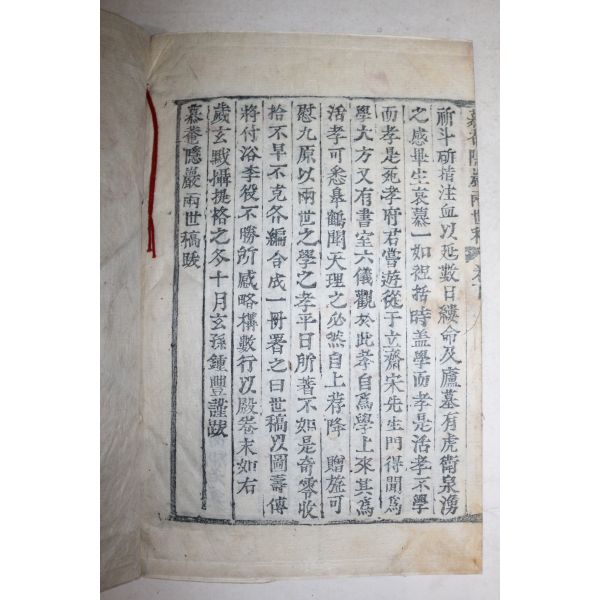 斫斗斫指注血以延數日縷命及廬墓有虎衛泉湧
之感畢生哀慕一如袒括時盖學而孝是活孝不學
而孝是死孝府君嘗遊從于立齋宋先生門得聞爲
學大方又有書室六儀觀於此孝自爲學上來其爲
活孝可悉皐鶴聞天理之必然自上荐降　贈旌可
慰九原以兩世之學之孝平日所著不如是奇零收
拾不早不克各編合成一冊署之曰世稿以圖壽傳
將付浴李役不勝所感略構數行以殿卷末如右
歲玄黓攝提格之冬十月玄孫鍾豐謹跋
慕菴隱巖兩世稿跋